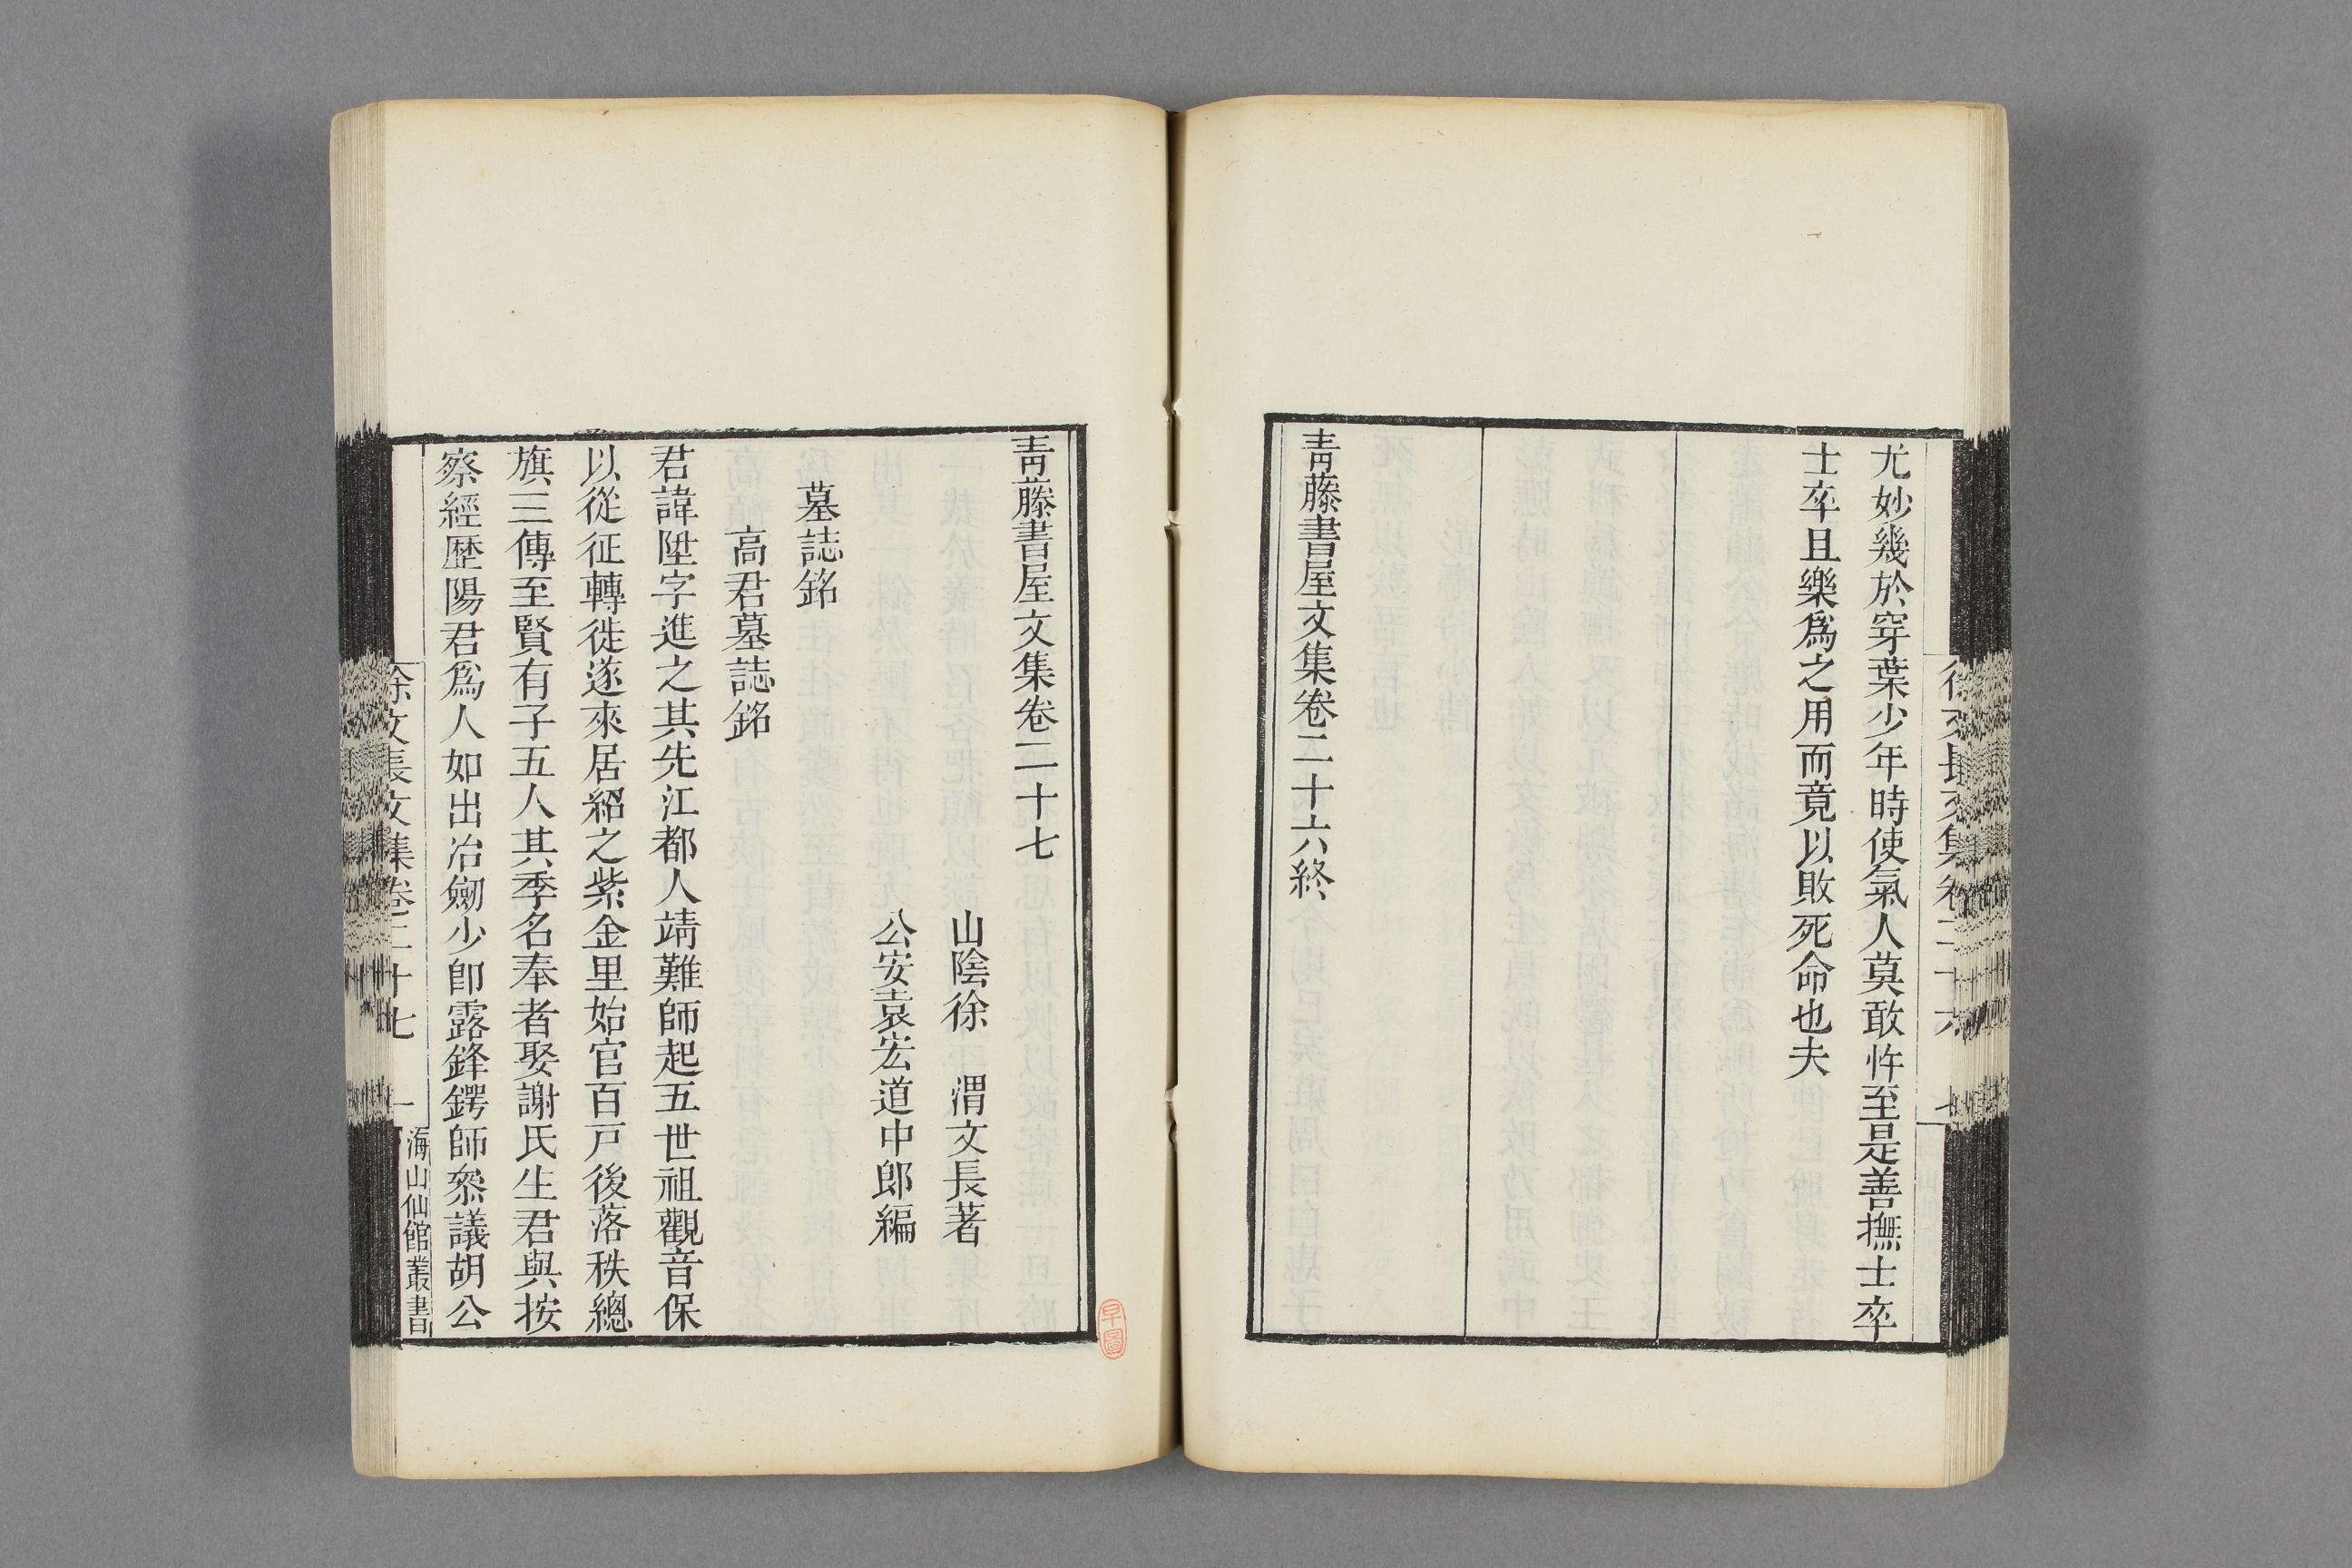 尤妙幾於穿葉少年時使氣人莫敢忤至是善撫士卒
士卒且樂爲之用而竟以敗死命也夫
青藤書屋文集卷二十六終
青藤書屋文集卷二十七
山陰徐　渭文長著
公安袁宏道中郎編
墓誌銘
高君墓誌銘
君諱陞字進之其先江都人靖難師起五世祖觀音保
以從征轉徙遂來居紹之紫金里始官百戸後落秩總
旗三傳至賢有子五人其季名奉者娶謝氏生君與按
察經歴陽君爲人如出冶劒少卽露鋒鍔師叅議胡公
徐文長文集卷二十七　一
海山仙館叢書
早圖